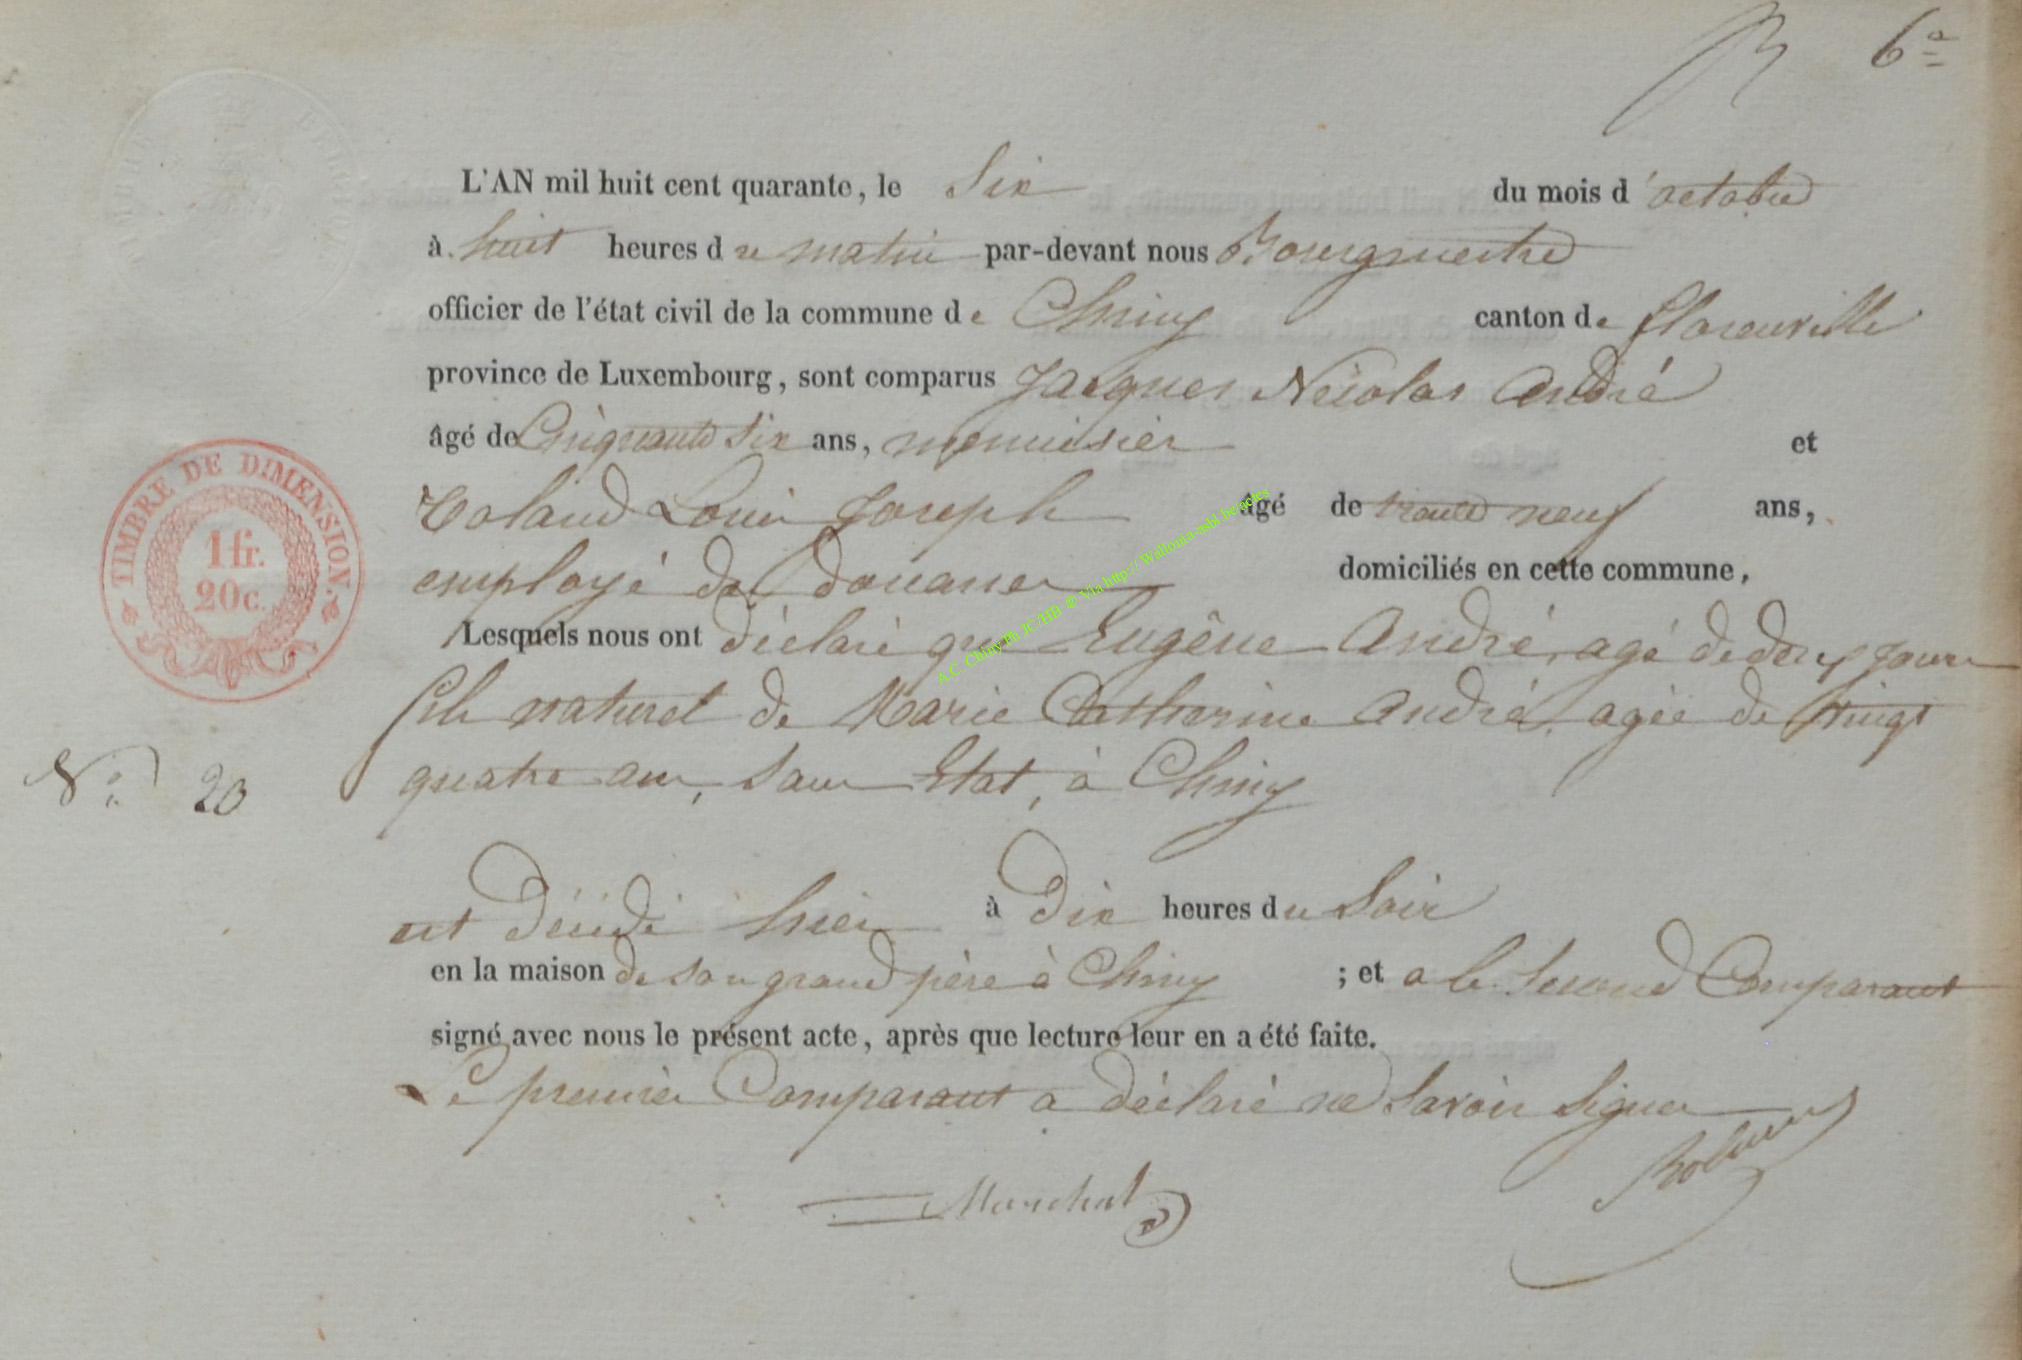 6e
L'AN mil huit cent quarante, le Six du mois d'octobre
à huit heures du matin par-devant nous Bourgmestre
officier de l'état civil de la commune de Chiny canton de florenville
province de Luxembourg, sont comparus Jacques Nicolas André
âgé de Cinquante Six ans, menuisier et
Louis Joseph âgé de trente neuf ans,
employé des douanes domiciliés en cette commune,
Lesquels nous ont déclaré que Eugêne André, agé de deux jours
fils naturel de Marie Catherine André, agée de Vingt
quatre ans, sans Etat, à Chiny
N° 20
est décédé hier à Dix heures du Soir
en la maison de son grand père à Chiny ; et a le Second Comparant
signé avec nous le présent acte, après que lecture leur en a été faite.
Le premier Comparant a déclaré ne Savoir Signer
Marchal
TIMBRE DE DIMENSION.
1 fr.
20 c.
A.C. Chiny Ph JC/HB © Via http://Wallonia-asbl.be/actes